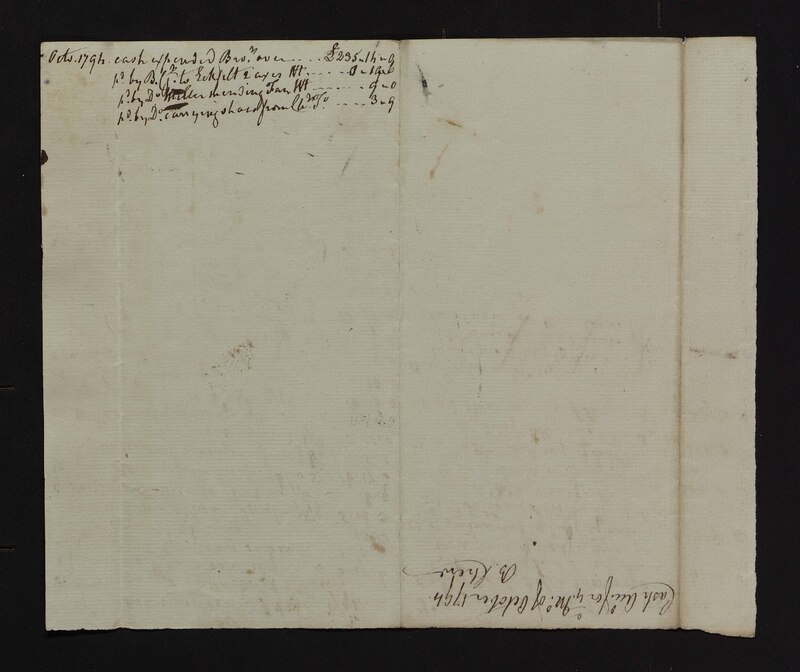 Octo. 1794. cash expended Bro.t over .... £235..14..9
p.d by B. C. Jr. to Eckfelt 2 axes Wt .... 0..19..0
p.d by D.o Miller mending Fan Wt .... 9..0
p.d by D.o carrying shad from .... 3..9
Cash Acct. for ye Mo. of October 1794.
B Chew